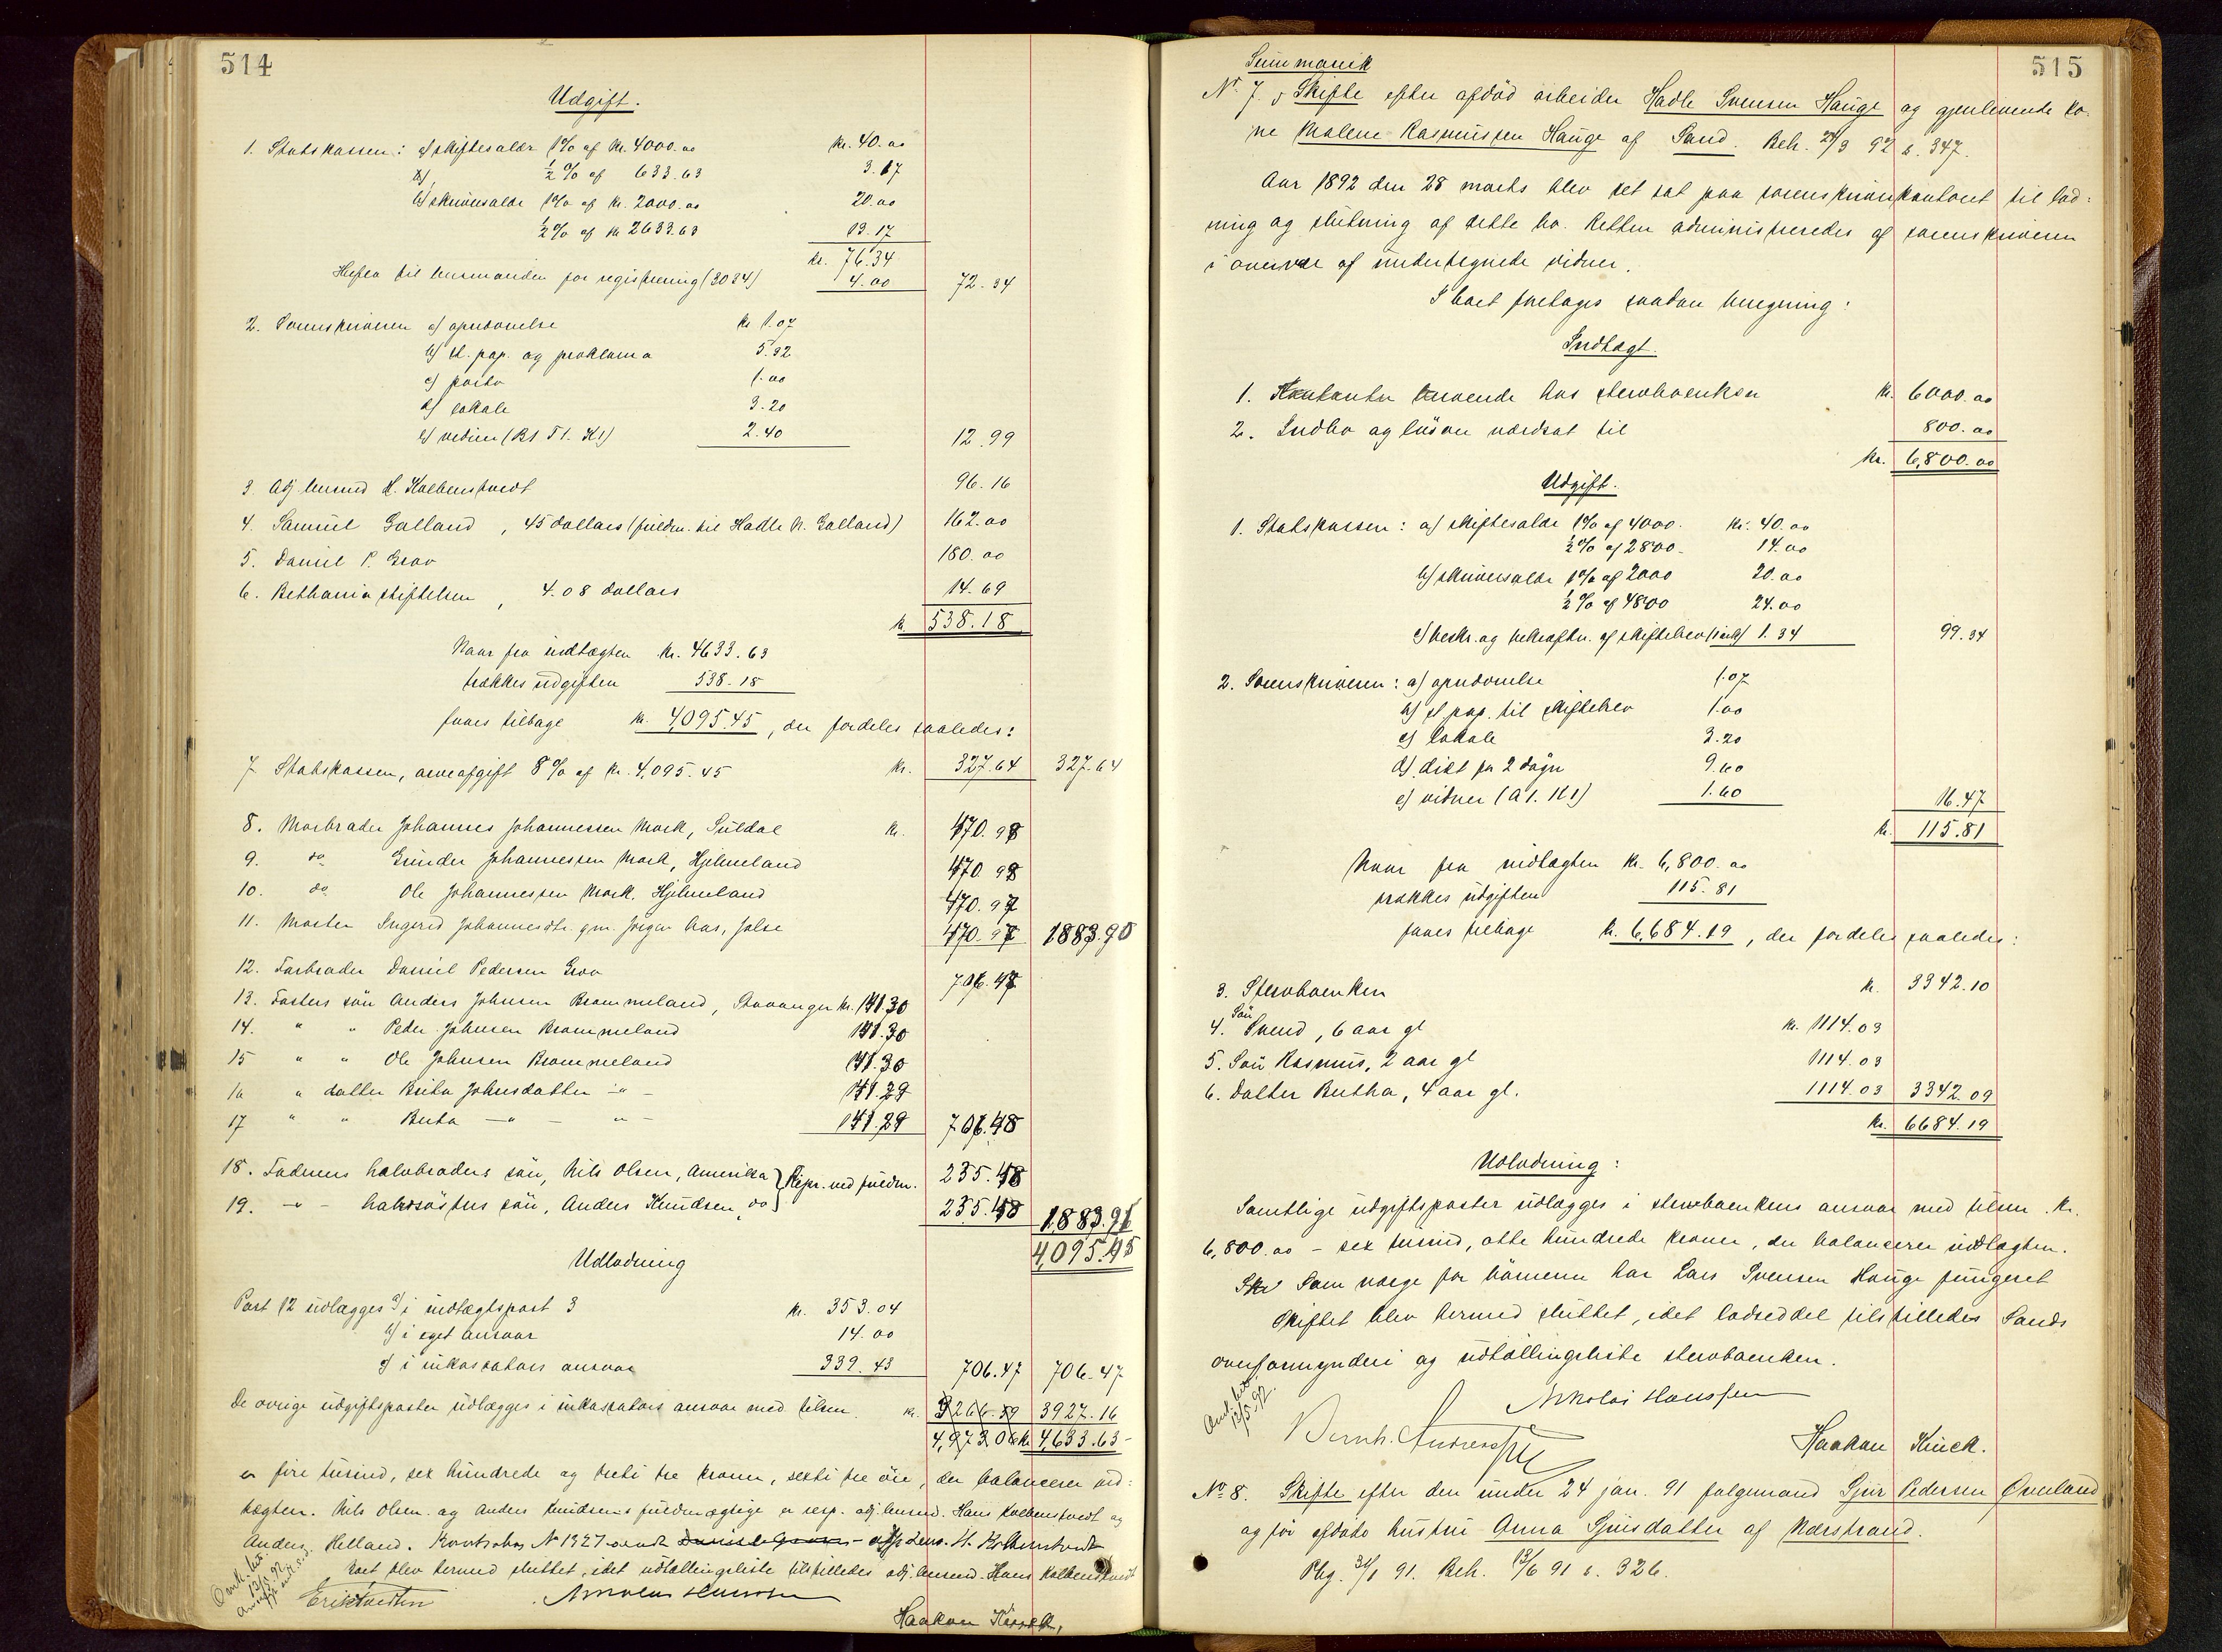 514
Udgift.
1. Statskassen: a) skiftesalær 1% af kr. 4000.00 kr. 40.00
½% af 633.63 3.17
b) skriversalær 1% af kr. 2000.00 20.00
½% af kr 2633.63 13.17
kr. 76.34
til lensmanden for registrering (3034) 4.00 72.34
2. Sorenskriveren a) opnævnelse kr 1.07
b) st. pap. og proklama 5.32
c) porto 1.00
d) lokale 3.20
e) vidner (B1 T1. K1) 2.40 12.99
3. Adj. lensmd H. Kolbenstvedt 96.16
4. Samuel Galland, 45 dollars (fuldm. til Hadle N. Galland) 162.00
5. Daniel P. Grov 180.00
6. Bethania stiftelsen, 4.08 dollars 14.69
kr. 538.18
Naar fra indtægten kr. 4633.63
trækkes udgiften 538.18
faaes tilbage kr. 4,095.45, der fordeles saaledes:
7. Statskassen, arveafgift 8% af kr. 4,095.45 kr. 327.64 327.64
8. Morbroder Johannes Johannessen Mork, Suldal kr. 470.98
9. do Gunder Johannessen Mork, Hjelmeland 470.98
10. do Ole Johannessen Mork, Hjelmeland 470.97
11. Moster Ingerid Johannesdtr. gm. Jørgen Aas, Jelse 470.97 1883.90
12. Farbroder Daniel Pedersen Grov 706.47
13. Fasters søn Anders Johnsen Brommeland, Stavanger kr. 141.30
14. " " Peder Johnsen Brommeland 141.30
15 " " Ole Johnsen Brommeland 141.30
16 " datter Brita Johnsdatter - " - 141.29
17 " " Berta - " - " - 141.29 706.48
18. Faderens halvbroders søn, Nils Olsen, Amerika } Repr. ved fuldm. 235.48
19. - " - halvsøsters søn, Anders Knudsen, do } 235.48 1,883.91
4,095.45
Udlodning
Post 12 udlægges a) i indtægtspost 3 kr. 353.04
b) i eget ansvar 14.00
c) i inkassators ansvar 339.43 706.47 706.47
De øvrige udgiftsposter udlægges i inkassators ansvar med tilsm. kr. 3266.59 3927.16
4,973.06 kr 4,633.63 -
er fire tusind, sex hundrede og treti tre kroner, sexti tre øre, der balancerer ind-
tægten. Nils Olsen og Anders Knudsens fuldmægtige er resp. adj. lensmd. Hans Kolbenstvedt og
Anders Helland. Kontrabog N 1927 sendt adj. lens. H. Kolbenstvedt
Boet blev dermed sluttet, idet udtællingsliste tilstilledes adj. lensmd. Hans Kolbenstvedt
Nikolai Hanssen
Haakon Kinck.
515
Summarisk
No 7. Skifte efter afdød arbeider Hadle Svensen Hauge og gjenlevende ko-
ne Malene Rasmussen Hauge af Sand. Beh. 24/3 92 s. 347.
Aar 1892 den 28 marts blev ret sat paa sorenskriverkontoret til lod-
ning og slutning af dette bo. Retten administreredes af sorenskriveren
i overvær af undertegnede vidner.
I boet foretages saadan beregning:
Indtægt.
1. Kontanter beroende hos stervboenken kr. 6000.00
2. Indbo og løsøre værdsat til 800.00
kr. 6,800.00
Udgift.
1. Statskassen: a) skiftesalær 1% af 4000. kr. 40.00
½% af 2800. 14.00
b) skriversalær 1% af 2000 20.00
½% af 4800 24.00
c) beskr. og bekræftn. af skiftebrev 1.34 99.34
2. Sorenskriveren: a) opnævnelse 1.07
b) st pap. til skiftebrev 1.00
c) lokale 3.20
d) diæt for 2 døgn 9.60
e) vidner (A1. K1) 1.60 16.47
kr. 115.81
Naar fra indtægten kr. 6,800.00
trækkes udgiften 115.81
faaes tilbage kr. 6,684.19, der fordeles saaledes:
3. Stervboenken kr. 3342.10
4. Søn Svend, 6 aar gl kr. 1114.03
5. Søn Rasmus, 2 aar gl 1114.03
6. Datter Bertha, 4 aar gl. 1114.03 3342.09
kr. 6684.19
Udlodning:
Samtlige udgiftsposter udlægges i stervboenkens ansvar med tilsm. kr.
6,800.00 - sex tusind, otte hundrede kroner, der balancerer indtægten.
Som værge for børnene har Lars Svensen Hauge fungeret
Skiftet blev hermed sluttet, idet lodseddel tilstilledes Sands
overformynderi og udtællingsliste stervboenken.
Nikolai Hanssen
Bernh. Andreassen
Haakon Kinck.
No 8. Skifte efter den under 24 jan. 91 folgemand Sjur Pedersen Øverland
og før afdøde hustru Anna Sjursdatter af Nærstrand.
Phg. 31/1 91. Beh. 13/6 91 s. 326.